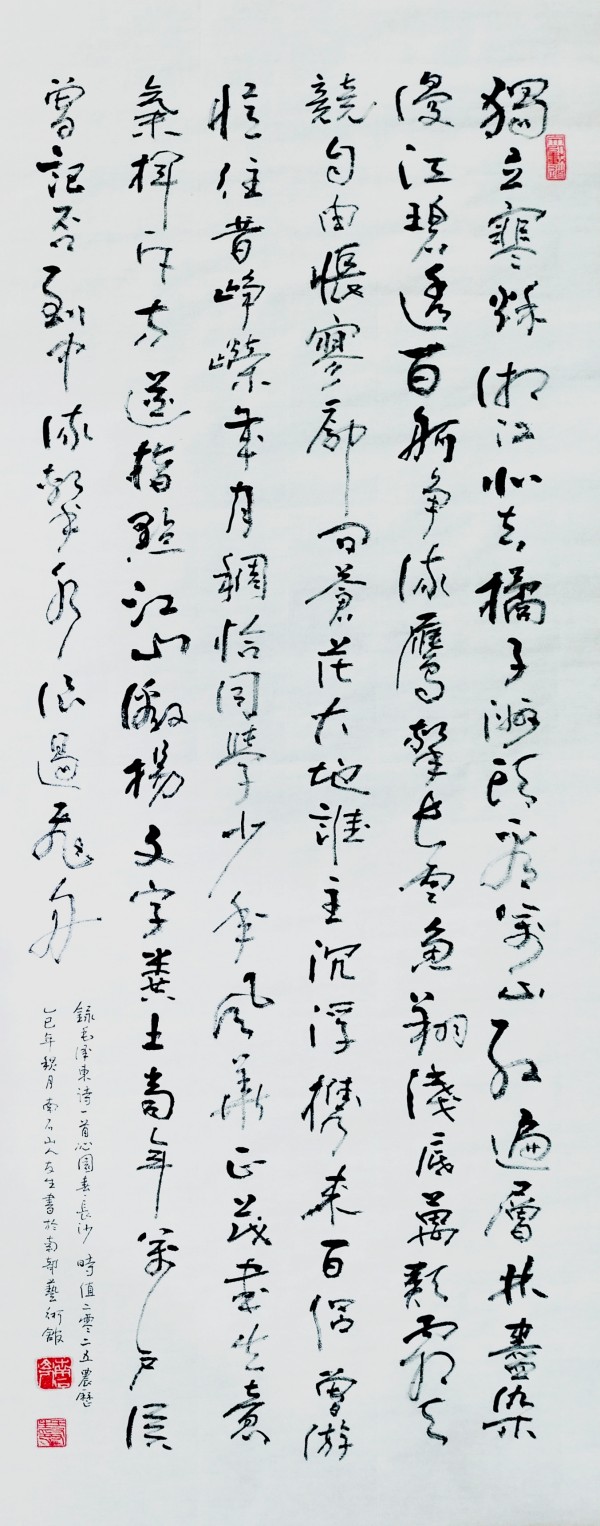 獨立寒秌湘江北去橘子洲頭看萬山紅遍層林盡染
漫江碧透百舸争流鷹擊長空魚翔淺底萬類霜天
競自由悵寥廓问蒼茫大地誰主沉浮攜来百侣曾游
憶往昔崢嶸歲月稠恰同學少年風華正茂書生意
氣揮斥方遒指點江山激揚文字糞土當年萬户侯
曾記否到中流擊水浪遏飛舟
録毛泽東诗一首沁园春長沙 時值二零二五農歷
乙巳年秌月南石山人友生書於南部藝術館